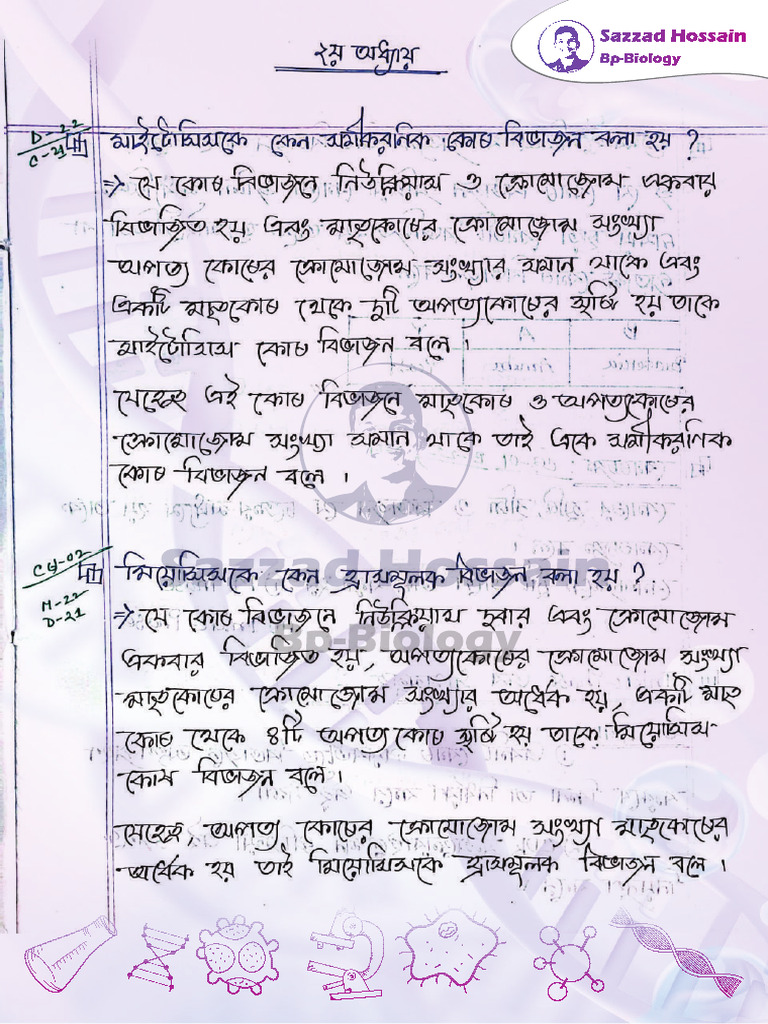 Sazzad Hossain
Bp-Biology
২য় অধ্যায়
D-22
C-21
মাইটোসিসকে কেন সমীকরণিক কোষ বিভাজন বলা হয় ?
⇒ যে কোষ বিভাজনে নিউক্লিয়াস ও ক্রোমোজোম একবার
বিভাজিত হয় এবং মাতৃকোষের ক্রোমোজোম সংখ্যা
অপত্য কোষের ক্রোমোজোম সংখ্যার সমান থাকে এবং
একটি মাতৃকোষ থেকে দুটি অপত্যকোষের সৃষ্টি হয় তাকে
মাইটোসিস কোষ বিভাজন বলে ।
যেহেতু এই কোষ বিভাজনে মাতৃকোষ ও অপত্যকোষের
ক্রোমোজোম সংখ্যা সমান থাকে তাই একে সমীকরণিক
কোষ বিভাজন বলে ।
Sazzad Hossain
Bp-Biology
CH-02
M-22
D-21
মিয়োসিসকে কেন হ্রাসমূলক বিভাজন বলা হয় ?
⇒ যে কোষ বিভাজনে নিউক্লিয়াস দুবার এবং ক্রোমোজোম
একবার বিভাজিত হয়, অপত্যকোষের ক্রোমোজোম সংখ্যা
মাতৃকোষের ক্রোমোজোম সংখ্যার অর্ধেক হয়, একটি মাতৃ
কোষ থেকে ৪টি অপত্য কোষ সৃষ্টি হয় তাকে মিয়োসিস
কোষ বিভাজন বলে ।
যেহেতু, অপত্য কোষের ক্রোমোজোম সংখ্যা মাতৃকোষের
অর্ধেক হয় তাই মিয়োসিসকে হ্রাসমূলক বিভাজন বলে ।